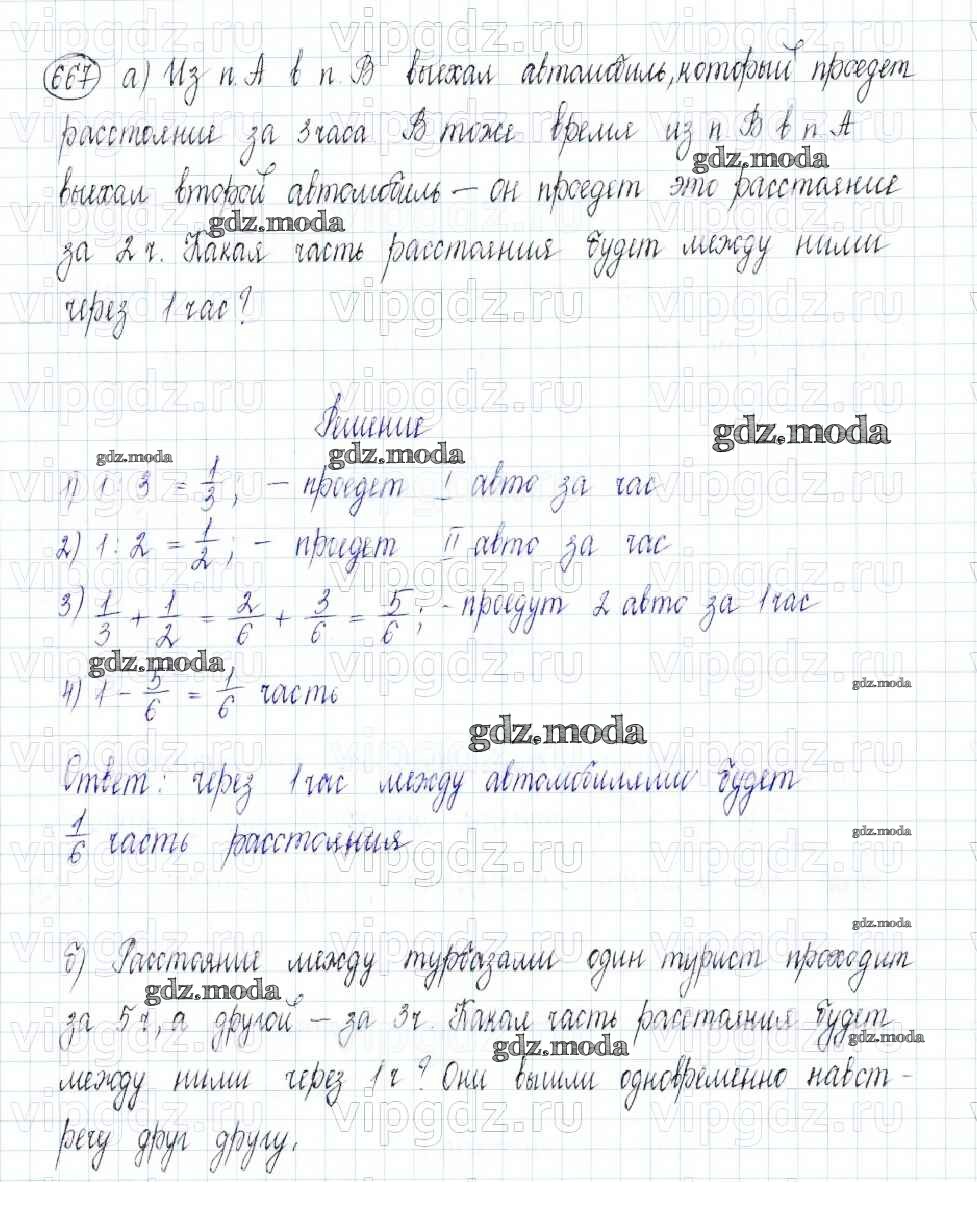 667 а) Из п. А в п. В выехал автомобиль, который проедет
расстояние за 3 часа В тоже время из п В в п А
gdz.moda
выехал второй автомобиль – он проедет это расстояние
gdz.moda
за 2 ч. Какая часть расстояния будет между ними
через 1 час?
Решение
gdz.moda
gdz.moda
gdz.moda
1) 1 : 3 = 1/3 ; – проедет I авто за час
2) 1 : 2 = 1/2 ; – проедет II авто за час
3) 1/3 + 1/2 = 2/6 + 3/6 = 5/6 ; – проедут 2 авто за 1 час
gdz.moda
4) 1 – 5/6 = 1/6 часть
gdz.moda
gdz.moda
Ответ: через 1 час между автомобилями будет
1/6 часть расстояния
gdz.moda
gdz.moda
б) Расстояние между турбазами один турист проходит
gdz.moda
за 5 ч, а другой – за 3 ч. Какая часть расстояния будет
gdz.moda
gdz.moda
между ними через 1 ч? Они вышли одновременно навст-
речу друг другу.
vipgdz.ru